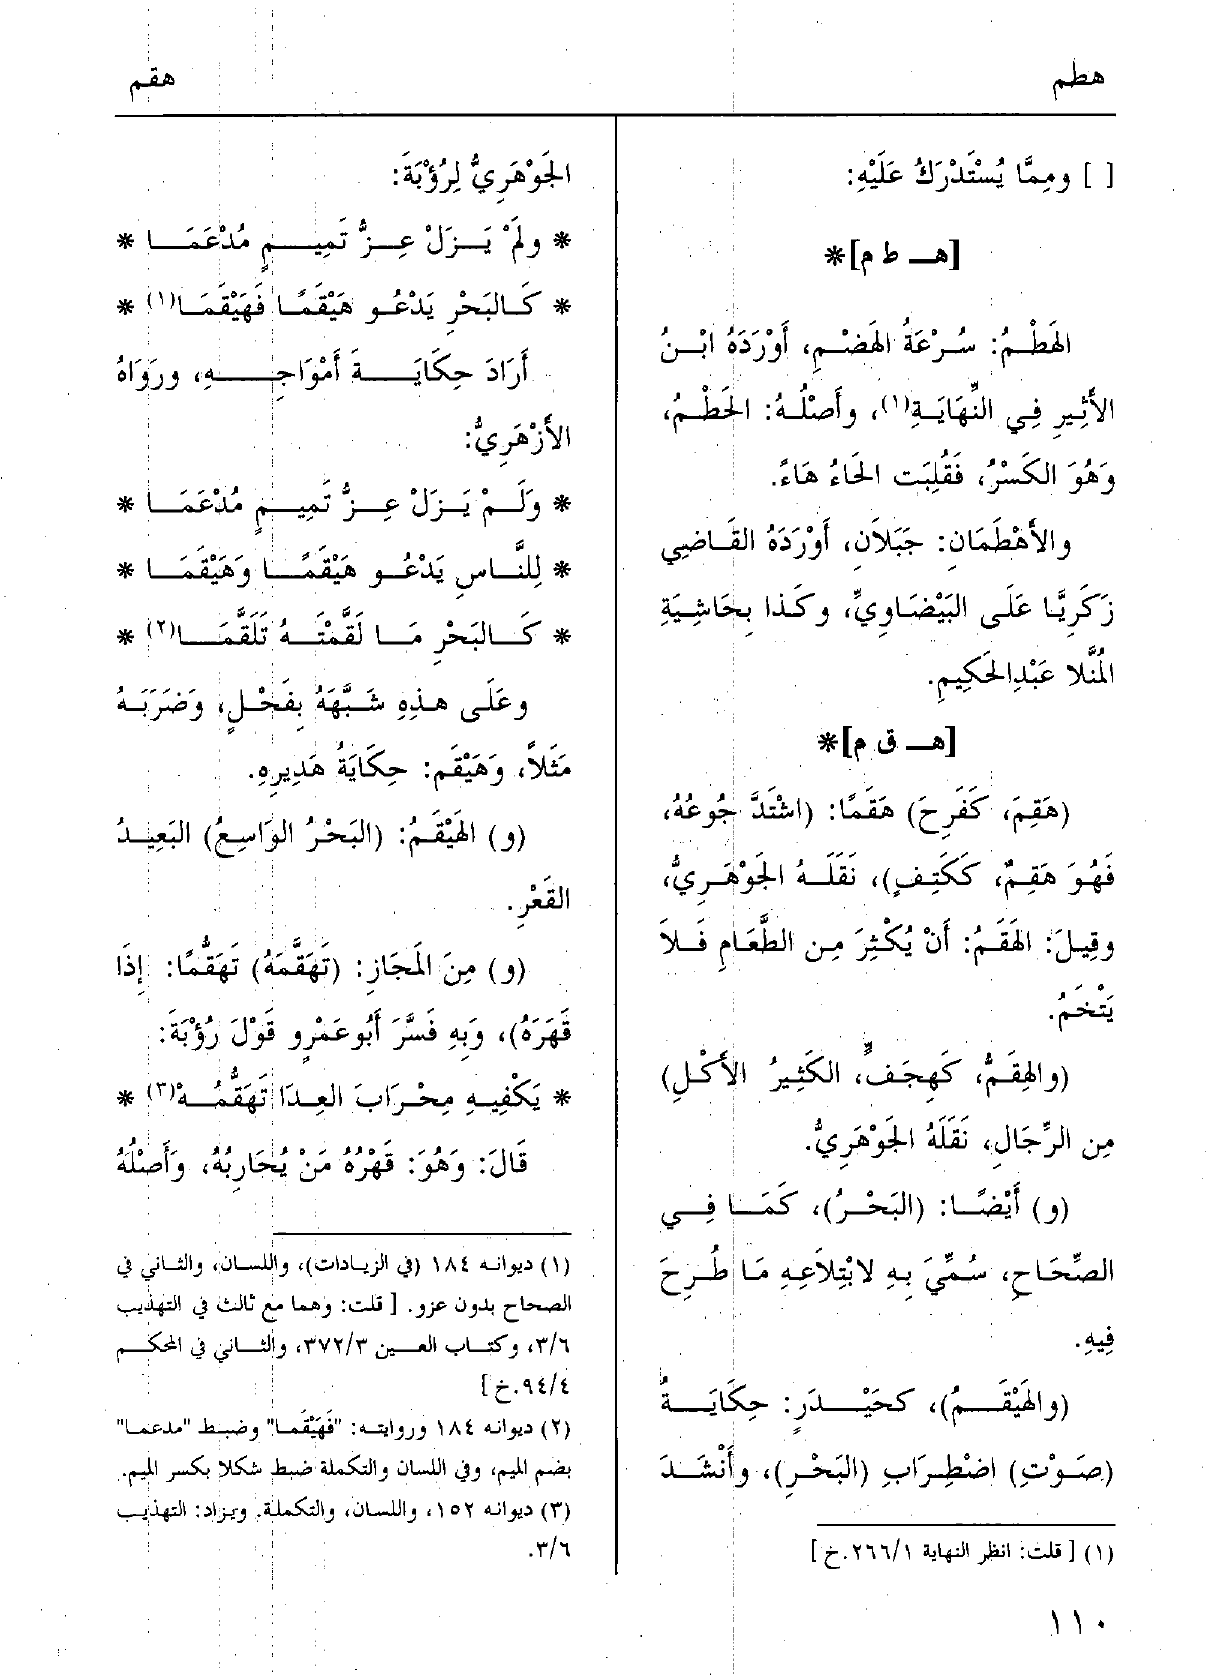 هطم
هقم
[ ] ومِمَّا يُسْتَدْرَكُ عَلَيْهِ:
[هـ ط م]*
الهَطْمُ: سُرْعَةُ الهَضْمِ، أَوْرَدَهُ ابْنُ
الأَثِيرِ فِي النِّهَايَةِ(١)، وأَصْلُهُ: الحَطْمُ،
وَهُوَ الكَسْرُ، فَقُلِبَت الحَاءُ هَاءً.
والأَهْطَمَانِ: جَبَلاَنِ، أَوْرَدَهُ القَاضِي
زَكَرِيَّا عَلَى البَيْضَاوِيِّ، وكَذا بِحَاشِيَةِ
المُنَّلا عَبْدِالحَكِيمِ.
[هـ ق م]*
(هَقِمَ، كَفَرِحَ) هَقَمًا: (اشْتَدَّ جُوعُهُ،
فَهُوَ هَقِمٌ، كَكَتِفٍ)، نَقَلَهُ الجَوْهَرِيُّ،
وقِيلَ: الهَقَمُ: أَنْ يُكْثِرَ مِن الطَّعَامِ فَلاَ
يَتْخَمُ.
(والهِقَمُّ، كَهِجَفٍّ، الكَثِيرُ الأَكْلِ)
مِن الرِّجَالِ، نَقَلَهُ الجَوْهَرِيُّ.
(و) أَيْضًا: (البَحْرُ)، كَمَا فِي
الصِّحَاحِ، سُمِّيَ بِهِ لابْتِلاَعِهِ مَا طُرِحَ
فِيهِ.
(والهَيْقَمُ)، كحَيْدَرٍ: حِكَايَةُ
(صَوْتِ) اضْطِرَابِ (البَحْرِ)، وأَنْشَدَ
(١) [ قلت: انظر النهاية ٢٦٦/١.خ ]
الجَوْهَرِيُّ لِرُؤْبَةَ:
* ولَمْ يَزَلْ عِزُّ تَمِيمٍ مُدْعَمَا *
* كَالبَحْرِ يَدْعُو هَيْقَمًا فَهَيْقَمَا(١) *
أَرَادَ حِكَايَةَ أَمْوَاجِهِ، ورَوَاهُ
الأَزْهَرِيُّ:
* وَلَمْ يَزَلْ عِزُّ تَمِيمٍ مُدْعَمَا *
* لِلنَّاسِ يَدْعُو هَيْقَمًا وَهَيْقَمَا *
* كَالبَحْرِ مَا لَقَّمْتَهُ تَلَقَّمَا(٢) *
وعَلَى هذِهِ شَبَّهَهُ بِفَحْلٍ، وَضَرَبَهُ
مَثَلاً، وَهَيْقَم: حِكَايَةُ هَدِيرِهِ.
(و) الهَيْقَمُ: (البَحْرُ الوَاسِعُ) البَعِيدُ
القَعْرِ.
(و) مِنَ المَجَازِ: (تَهَقَّمَهُ) تَهَقُّمًا: إِذَا
قَهَرَهُ)، وَبِهِ فَسَّرَ أَبُوعَمْرٍو قَوْلَ رُؤْبَةَ:
* يَكْفِيهِ مِحْرَابَ العِدَا تَهَقُّمُهْ(٣) *
قَالَ: وَهُوَ: قَهْرُهُ مَنْ يُحَارِبُهُ، وَأَصْلُهُ
(١) ديوانه ١٨٤ (في الزيادات)، واللسان، والثاني في
الصحاح بدون عزو. [ قلت: وهما مع ثالث في التهذيب
٣/٦، وكتاب العين ٣٧٢/٣، والثاني في المحكم
٩٤/٤.خ ]
(٢) ديوانه ١٨٤ وروايته: "فَهَيْقَما" وضبط "مدعما"
بضم الميم، وفي اللسان والتكملة ضبط شكلا بكسر الميم.
(٣) ديوانه ١٥٢، واللسان، والتكملة. ويزاد: التهذيب
٣/٦.
١١٠